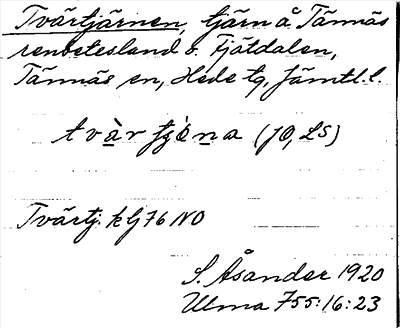 Tvärtjärnen, tjärn å Tännäs
renbetesland o. Fjätdalen,
Tännäs sn, Hede tg, Jämtl. l.
tvàr tjòna (JO, LS)
Tvärtj. kbj 76 NO
S. Åsander 1920
Ulma 755:16:23